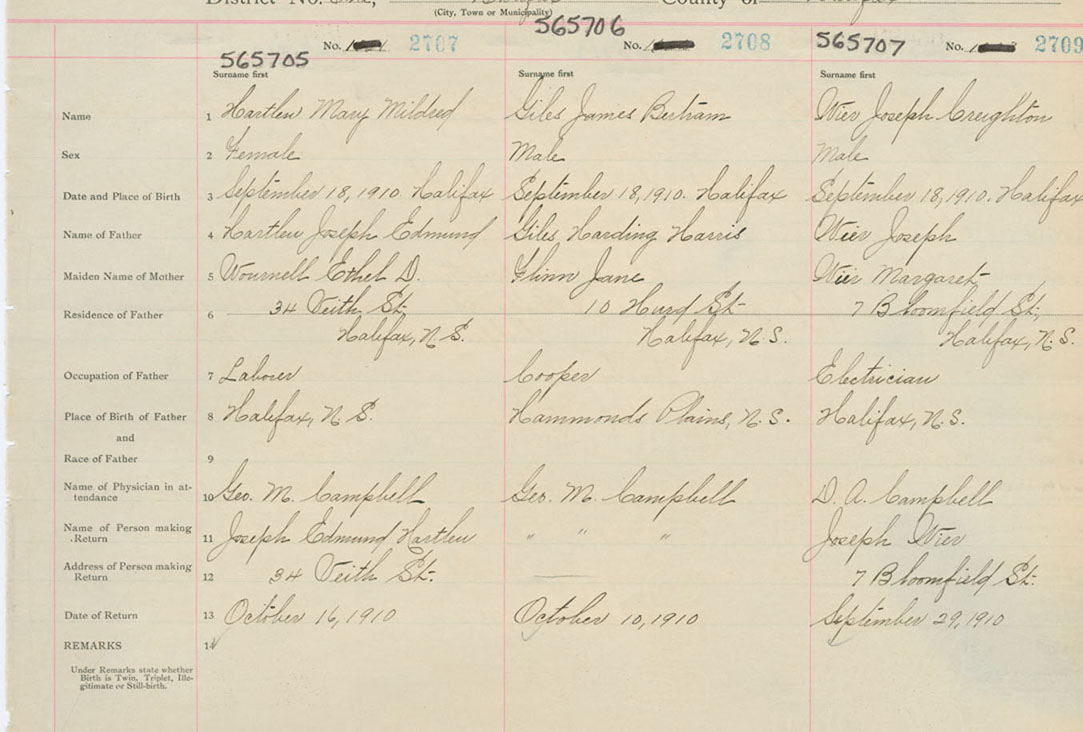 District No. County of Halifax
(City, Town or Municipality)
565705 No. 2707 565706 No. 2708 565707 No. 2709
Surname first Surname first Surname first
Name 1 Hartlen Mary Mildred Giles James Bertram Wier Joseph Creighton
Sex 2 Female Male Male
Date and Place of Birth 3 September 18, 1910. Halifax September 18, 1910. Halifax September 18, 1910. Halifax
Name of Father 4 Hartlen Joseph Edmund Giles Harding Harris Wier Joseph
Maiden Name of Mother 5 Wournell Ethel D. Flinn Jane Wier Margaret
Residence of Father 6 34 Veith St. 10 Hurd St. 7 Bloomfield St.,
Halifax, N.S. Halifax, N.S. Halifax, N.S.
Occupation of Father 7 Laborer Cooper Electrician
Place of Birth of Father 8 Halifax, N.S. Hammonds Plains, N.S. Halifax, N.S.
and
Race of Father 9
Name of Physician in at-
tendance 10 Geo. M. Campbell Geo. M. Campbell D. A. Campbell
Name of Person making
Return 11 Joseph Edmund Hartlen " " " Joseph Wier
Address of Person making
Return 12 34 Veith St. 7 Bloomfield St.
Date of Return 13 October 16, 1910 October 10, 1910 September 29, 1910
REMARKS 14
Under Remarks state whether
Birth is Twin, Triplet, Ille-
gitimate or Still-birth.